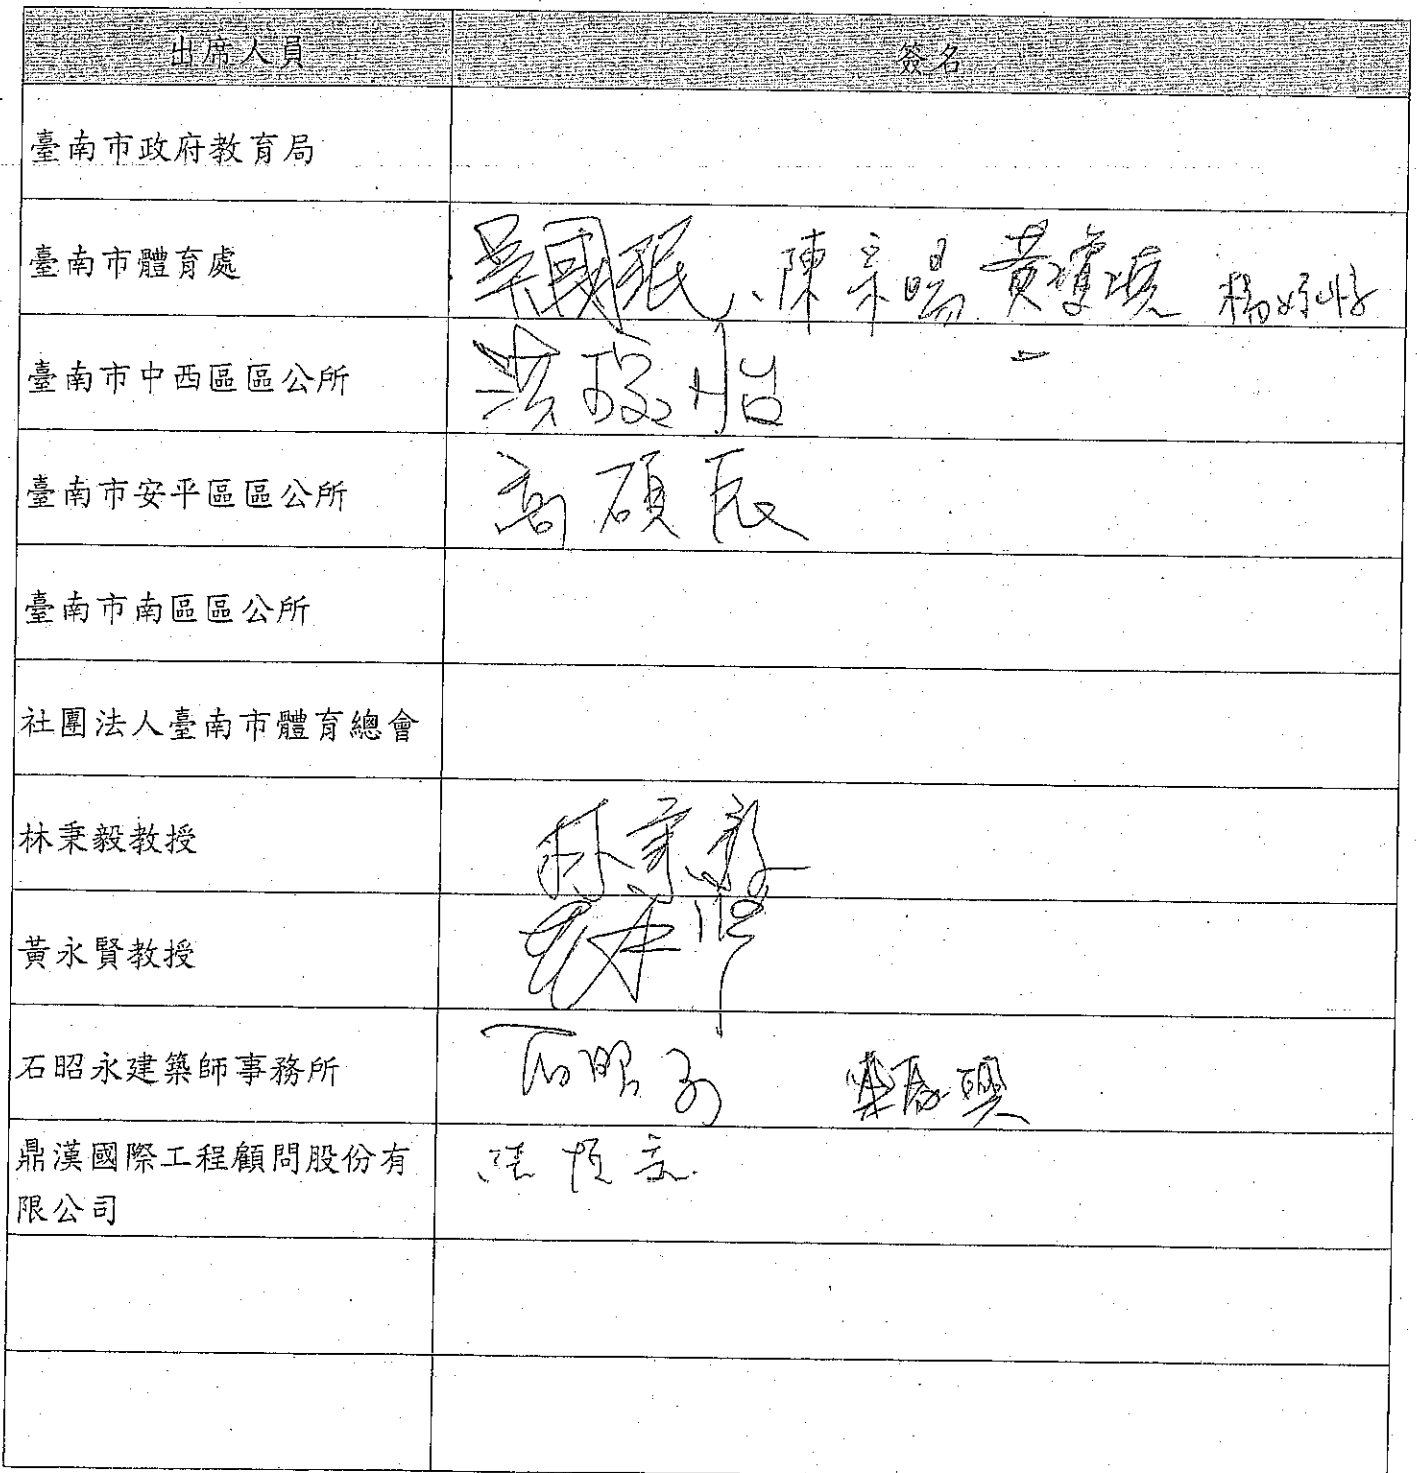 出席人員 簽名
臺南市政府教育局
臺南市體育處 吳國珉、陳宗暘
臺南市中西區區公所
臺南市安平區區公所 高碩辰
臺南市南區區公所
社團法人臺南市體育總會
林秉毅教授 林秉毅
黃永賢教授
石昭永建築師事務所 石昭永
鼎漢國際工程顧問股份有
限公司